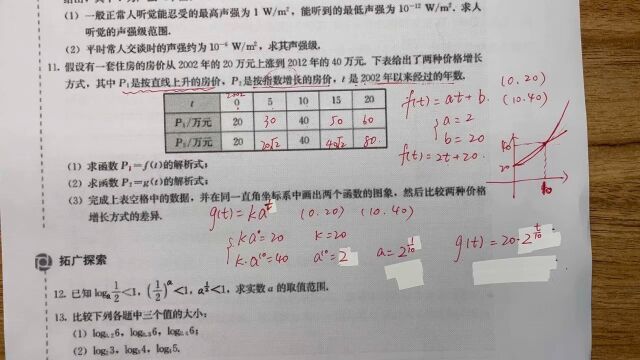 (1) 一般正常人听觉能忍受的最高声强为 1 W/m², 能听到的最低声强为 10⁻¹² W/m². 求人
听觉的声强级范围.
(2) 平时常人交谈时的声强约为 10⁻⁶ W/m², 求其声强级.
11. 假设有一套住房的房价从 2002 年的 20 万元上涨到 2012 年的 40 万元. 下表给出了两种价格增长
方式, 其中 P₁是按直线上升的房价, P₂是按指数增长的房价, t 是 2002 年以来经过的年数.
2002
t 0 5 10 15 20
P₁/万元 20 30 40 50 60
P₂/万元 20 20√2 40 40√2 80
f(t)=at+b. (0.20)
(10.40)
{ a=2
b=20
f(t)=2t+20.
40
20
10
(1) 求函数 P₁=f(t)的解析式;
(2) 求函数 P₂=g(t)的解析式;
(3) 完成上表空格中的数据, 并在同一直角坐标系中画出两个函数的图象, 然后比较两种价格
增长方式的差异.
g(t)=ka^t (0.20) (10.40)
{ k·a⁰=20 k=20
k·a¹⁰=40 a¹⁰=2 a=2^(1/10) g(t)=20·2^(t/10)
拓广探索
12. 已知 logₐ 1/2 <1, (1/2)^a <1, a^(1/2) <1, 求实数 a 的取值范围.
13. 比较下列各题中三个值的大小:
(1) log₀.₂6, log₀.₃6, log₀.₄6;
(2) log₂3, log₃4, log₄5.